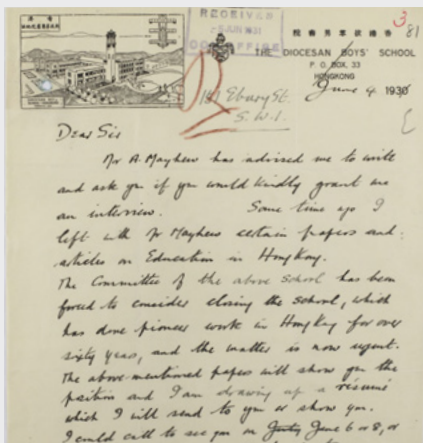 RECEIVED
5 JUN 1931
OFFICE
3
81
THE DIOCESAN BOYS' SCHOOL
P. O. BOX, 33
HONGKONG
June 4 1930
Ebury St.
S.W.1.
Dear Sir
Mr A. Mayhew has advised me to write
and ask you if you would kindly grant me
an interview. Some time ago I
left with Mr Mayhew certain papers and
articles on Education in HongKong.
The Committee of the above School has been
forced to consider closing the school, which
has done pioneer work in HongKong for over
sixty years, and the matter is now urgent.
The above-mentioned papers will show you the
position and I am drawing up a résumé
which I will send to you or show you.
I could call to see you on June 6 or 8, or